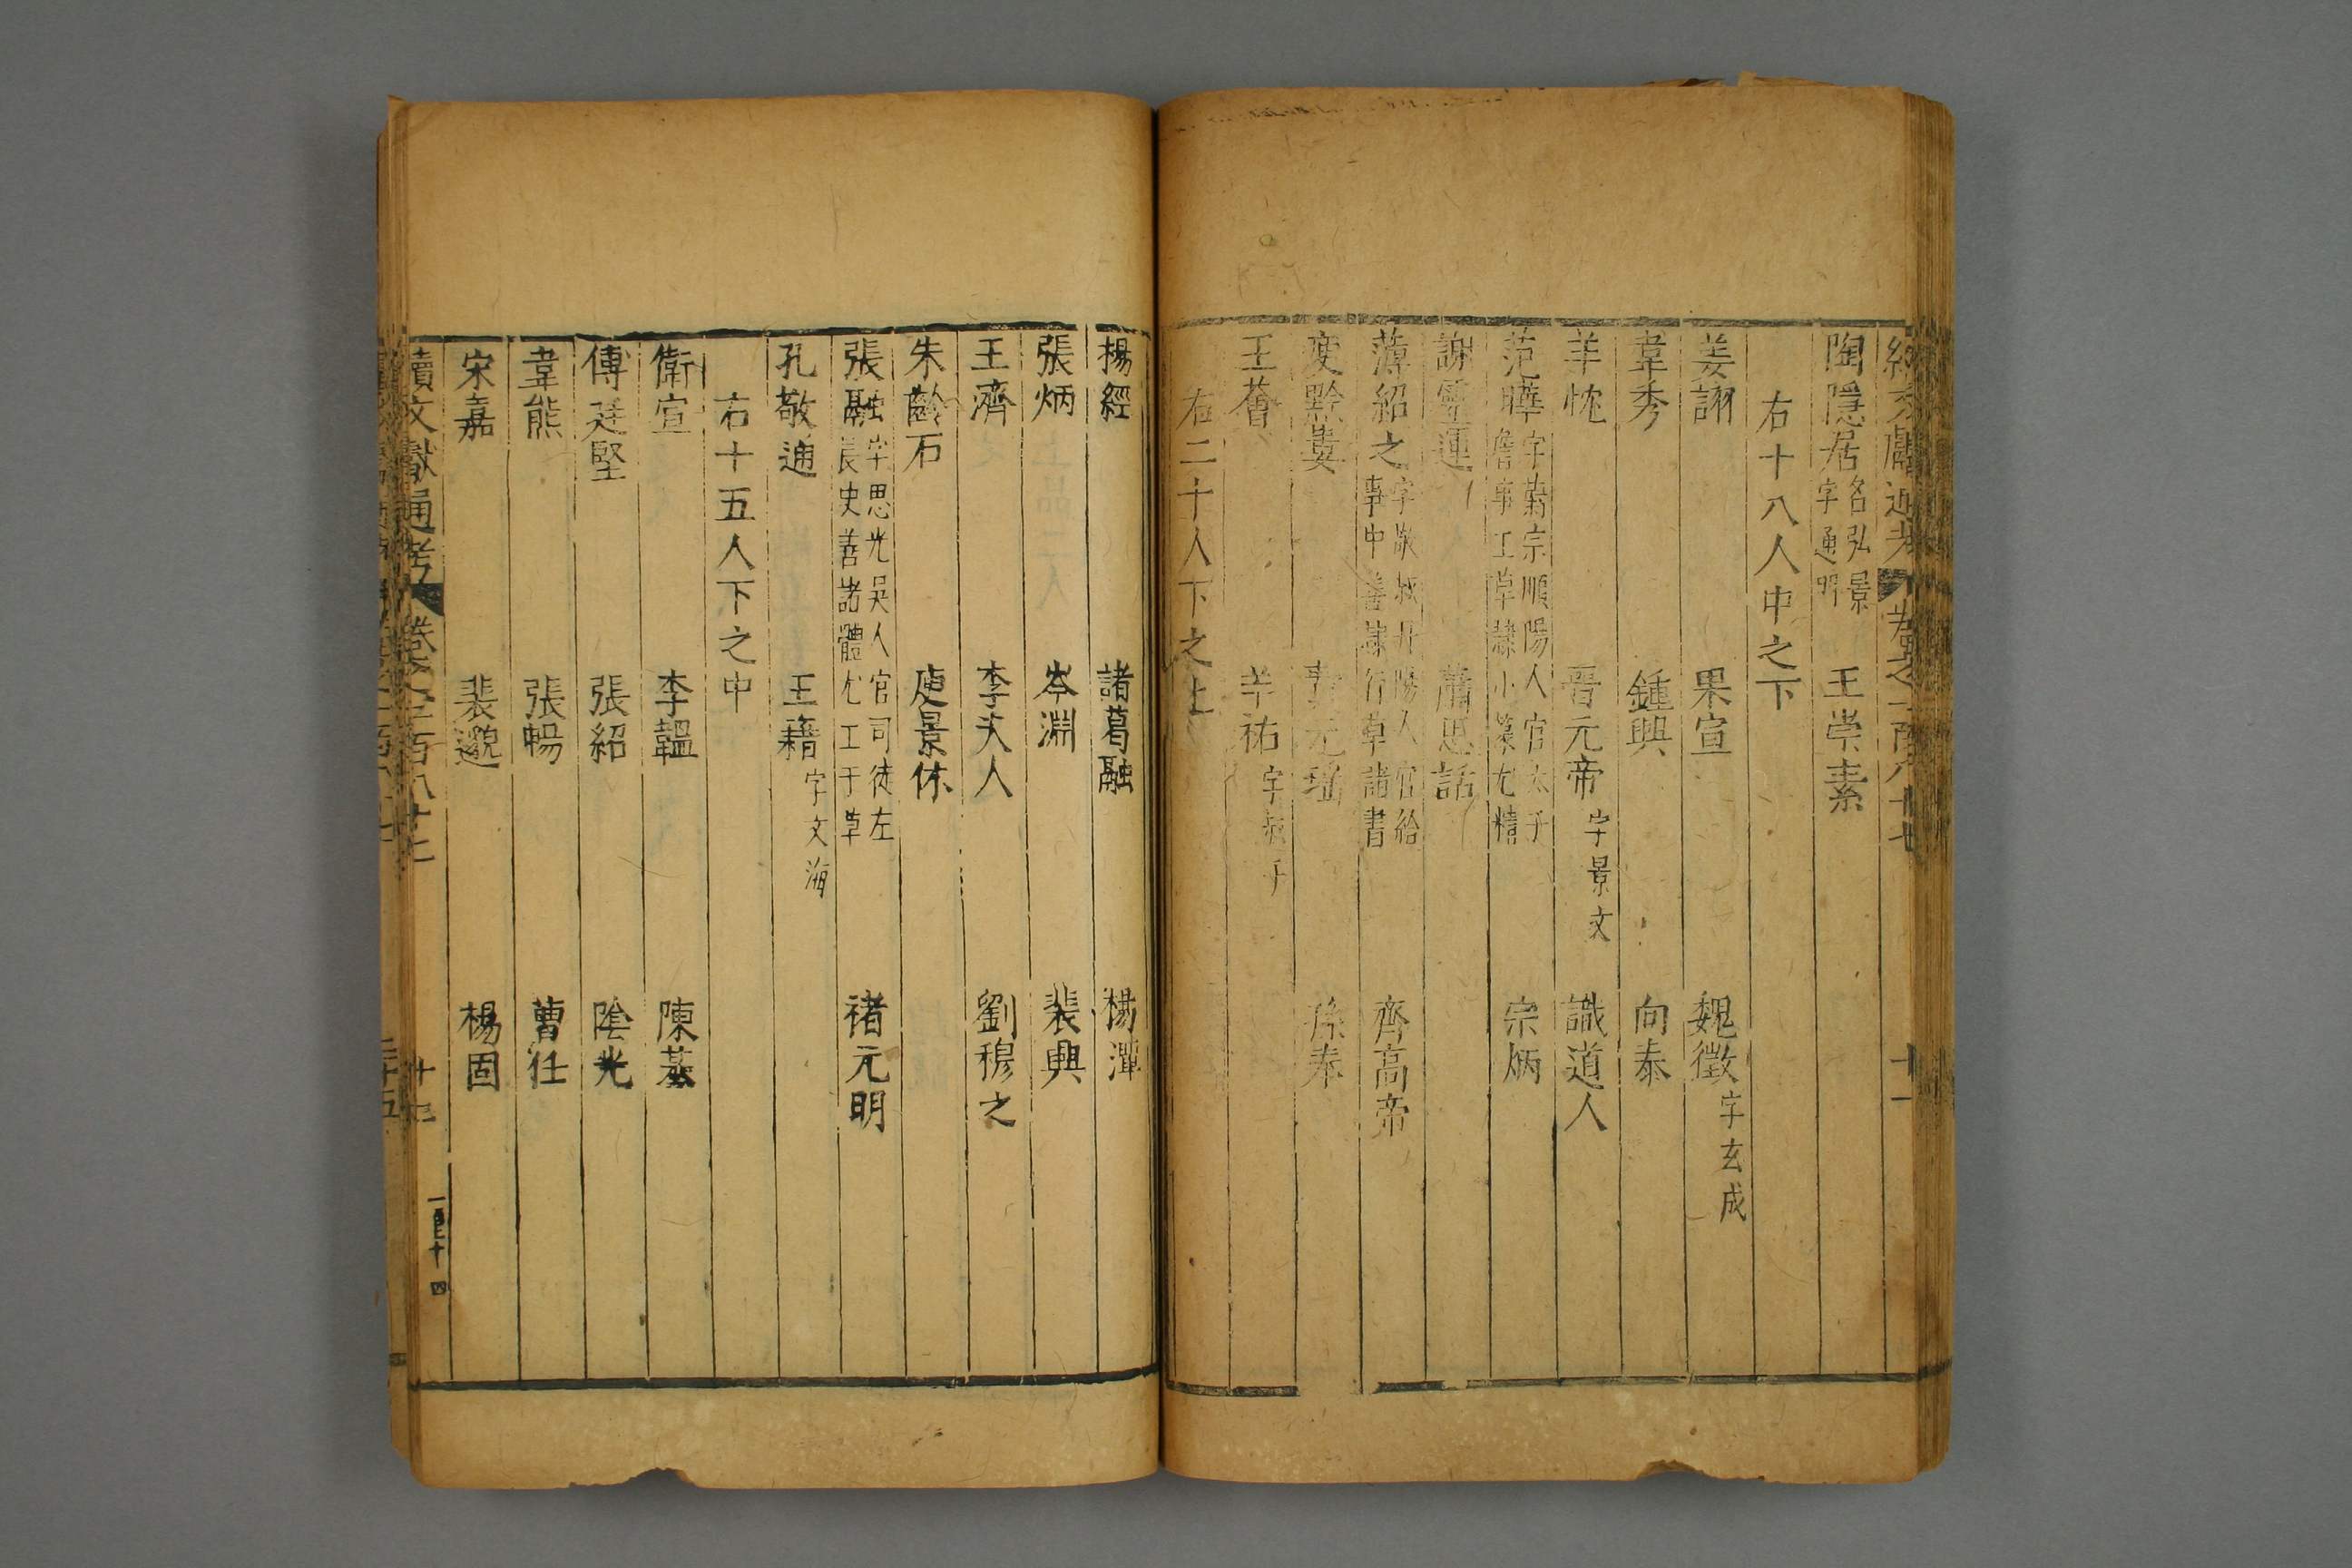 陶隱居名弘景字通明 王崇素
右十八人中之下
姜詡 果宣 魏徵字玄成
韋秀 鍾輿 向泰
羊忱 晉元帝字景文 識道人
范曄字蔚宗順陽人官太子詹事工草隸小篆尤精 宗炳
謝靈運 蕭思話
薄紹之字敬叔丹陽人官給事中善隸行草諸書 齊高帝
庾黔婁 費元瑤 孫奉
王薈 羊祐字叔子
右二十人下之上
楊經 諸葛融 楊潭
張炳 岑淵 裴興
王濟 李夫人 劉穆之
朱齡石 庾景休
張融字思光吳人官司徒左長史善諸體尤工于草 褚元明
孔敬通 王籍字文海
右十五人下之中
衛宣 李韞 陳基
傅廷堅 張紹 陰光
韋熊 張暢 曹任
宋嘉 裴邈 楊固
續文獻通考 卷之一百八十七